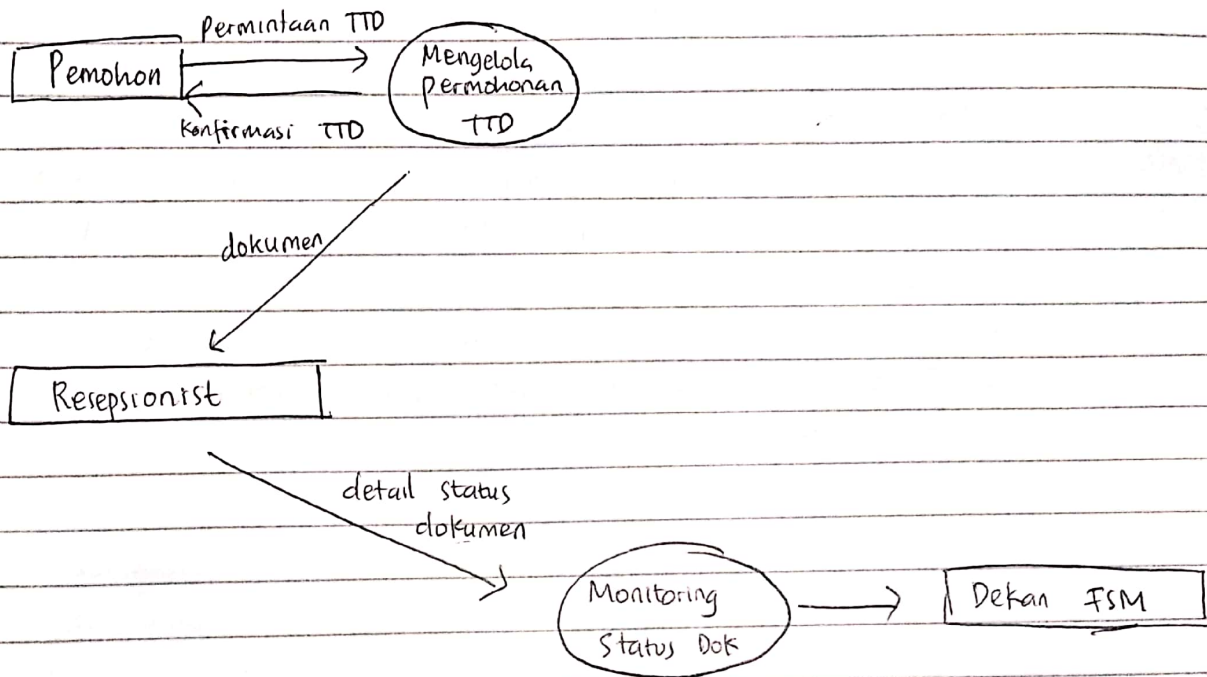 Permintaan TTD
Pemohon
Mengelola
Permohonan
TTD
Konfirmasi TTD
dokumen
Resepsionist
detail status
dokumen
Monitoring
Status Dok
Dekan FSM